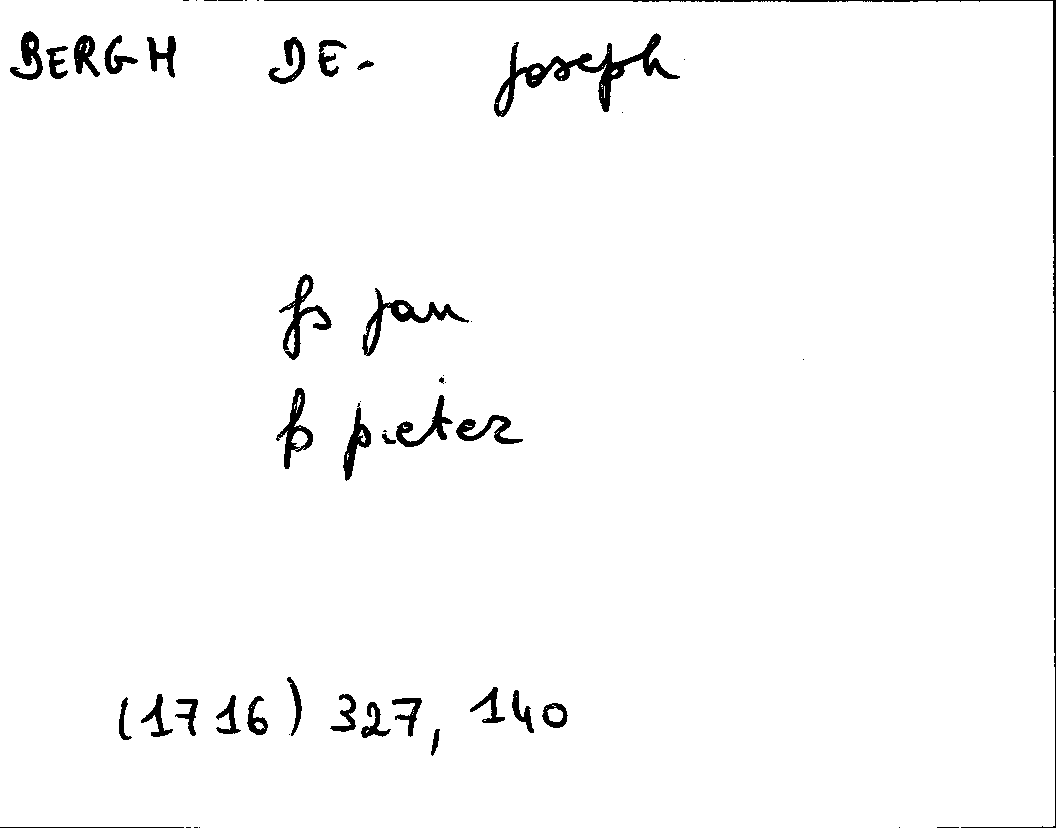 BERGH DE- Joseph
fs Jan
fs pieter
(1716) 327, 140